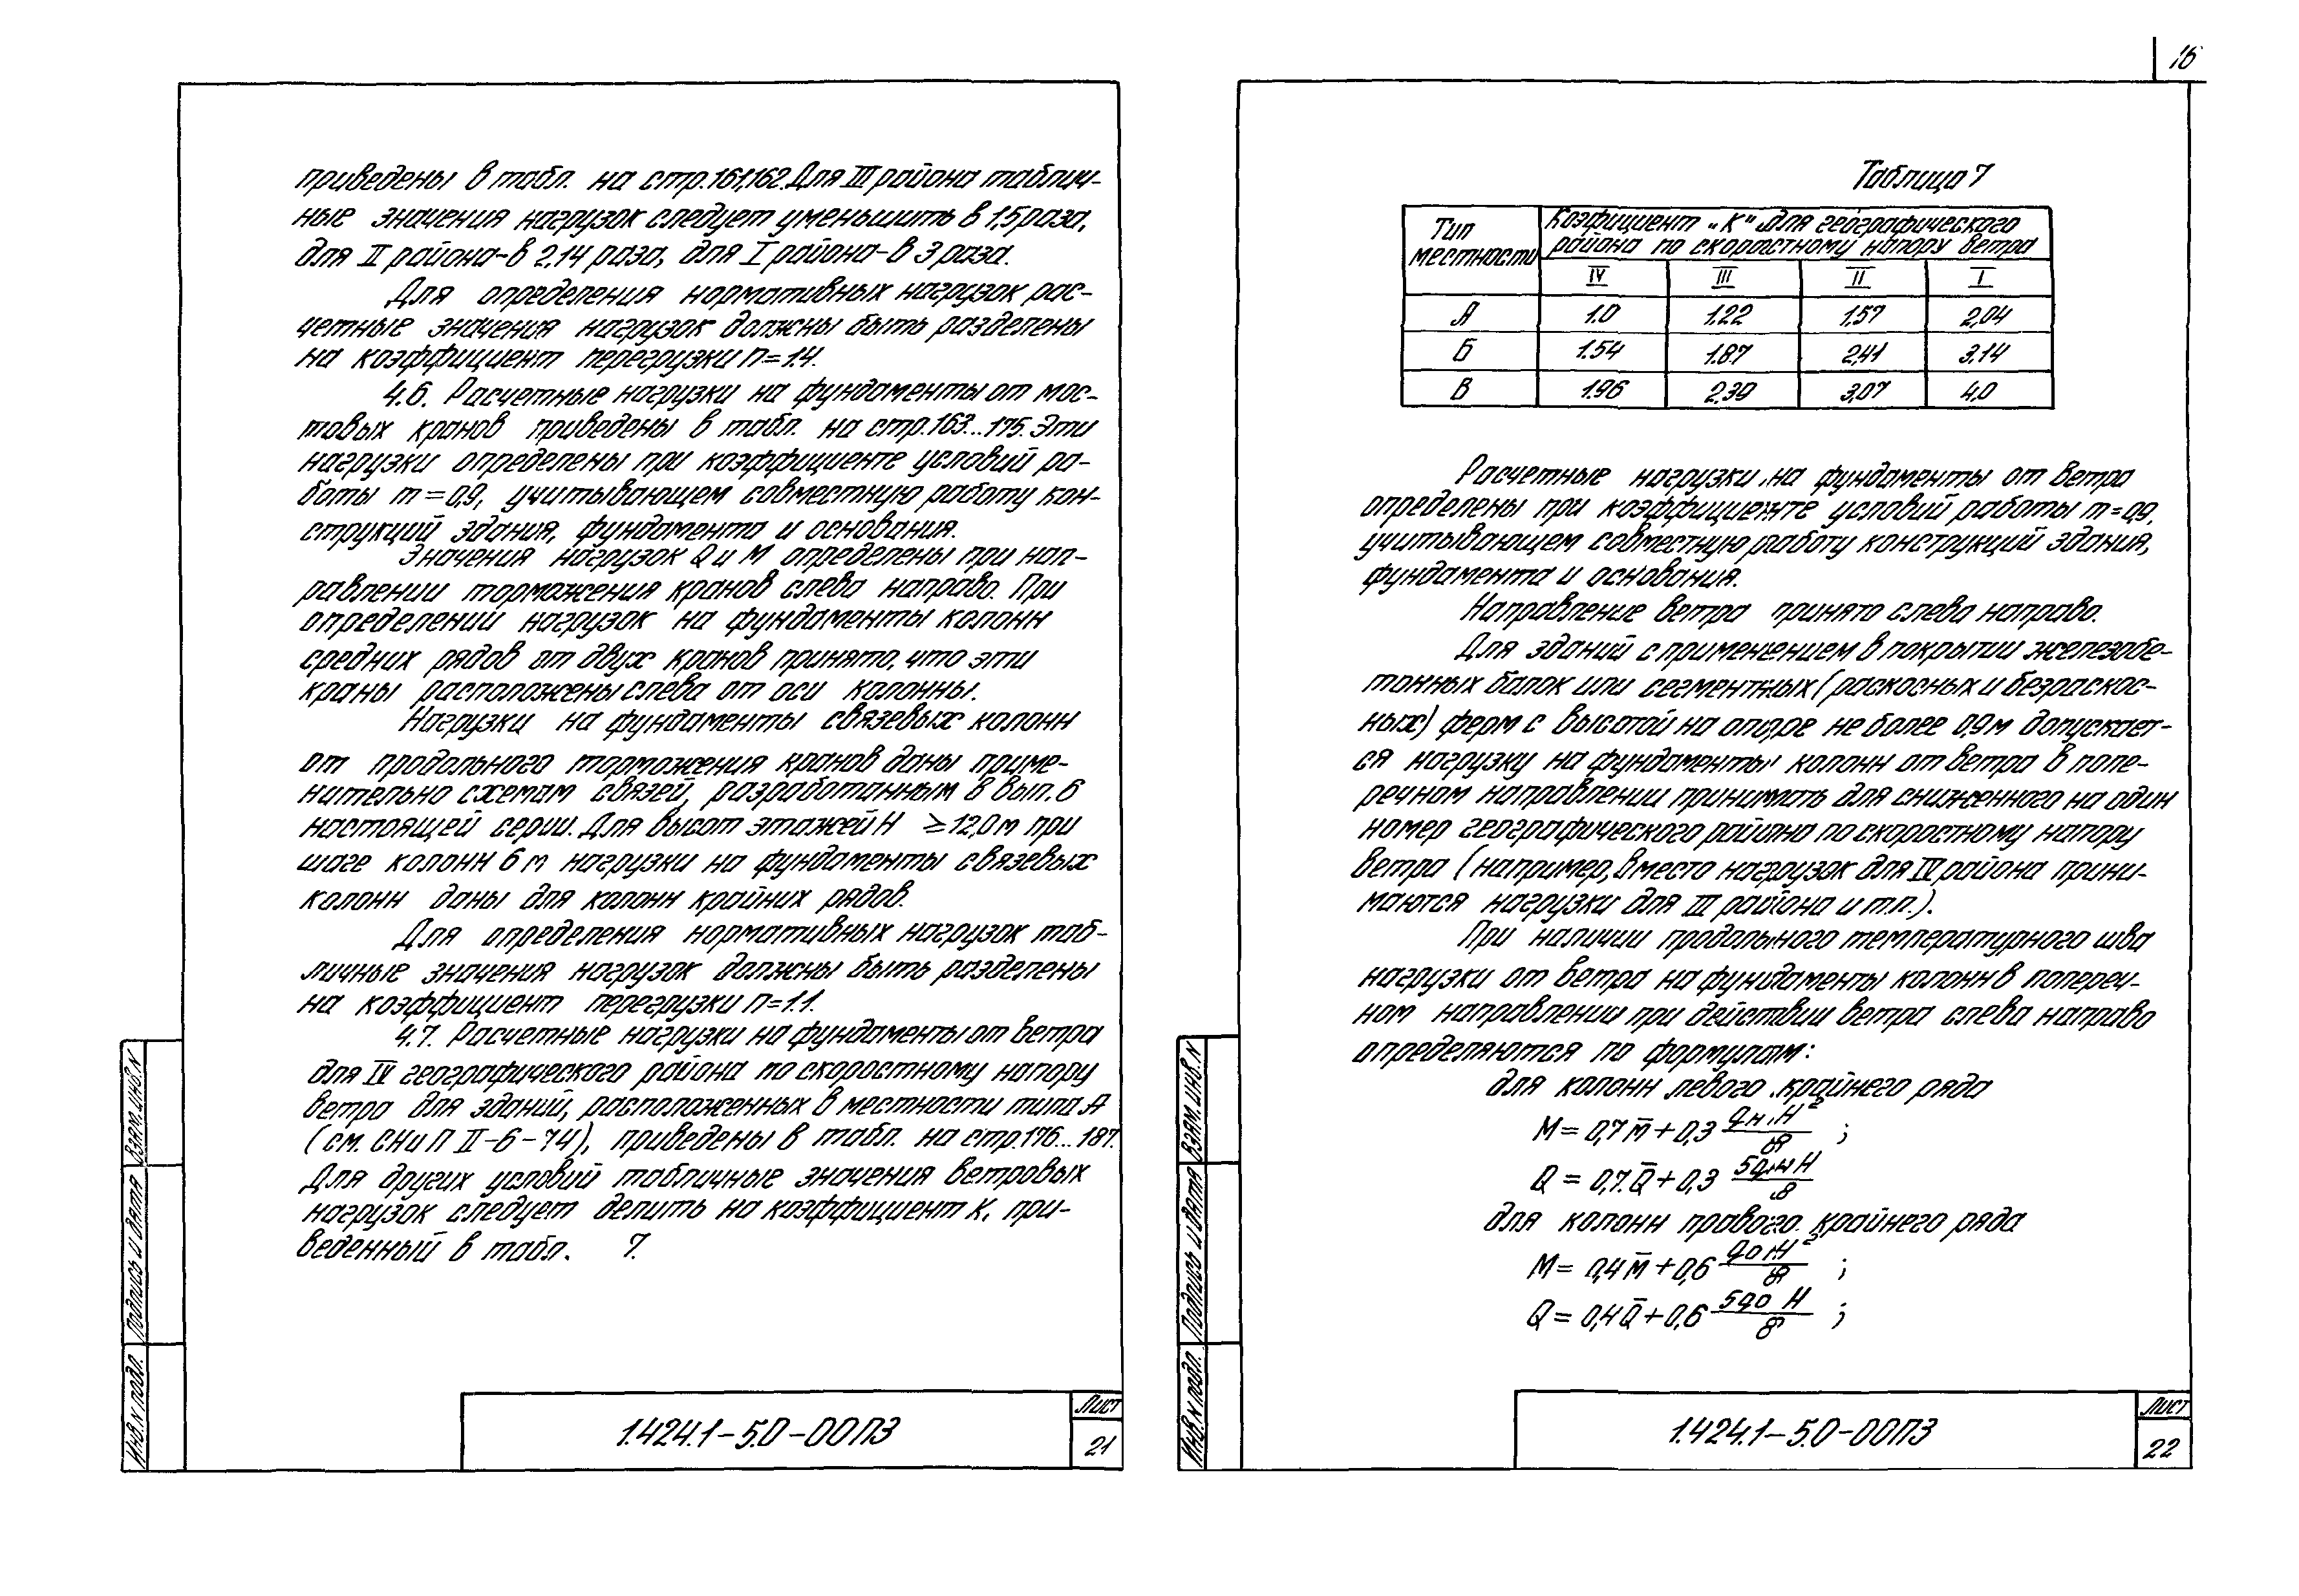 16
приведены в табл. на стр.161,162. Для III района таблич-
ные значения нагрузок следует уменьшить в 1,5 раза,
для II района-в 2,14 раза, для I района-в 3 раза.
Для определения нормативных нагрузок рас-
четные значения нагрузок должны быть разделены
на коэффициент перегрузки n=1.4.
4.6. Расчетные нагрузки на фундаменты от мос-
товых кранов приведены в табл. на стр.163...175. Эти
нагрузки определены при коэффициенте условий ра-
боты m=0,9, учитывающем совместную работу кон-
струкций здания, фундамента и основания.
Значения нагрузок Q и M определены при нап-
равлении торможения кранов слева направо. При
определении нагрузок на фундаменты колонн
средних рядов от двух кранов принято, что эти
краны расположены слева от оси колонны.
Нагрузки на фундаменты связевых колонн
от продольного торможения кранов даны приме-
нительно схемам связей, разработанным в вып. 6
настоящей серии. Для высот этажей H ≥12,0м при
шаге колонн 6м нагрузки на фундаменты связевых
колонн даны для колонн крайних рядов.
Для определения нормативных нагрузок таб-
личные значения нагрузок должны быть разделены
на коэффициент перегрузки n=1.1.
4.7. Расчетные нагрузки на фундаменты от ветра
для IV географического района по скоростному напору
ветра для зданий, расположенных в местности типа А
(см. СНиП II-6-74), приведены в табл. на стр.176...187.
Для других условий табличные значения ветровых
нагрузок следует делить на коэффициент К, при-
веденный в табл. 7.
Взам. инв. N
Подпись и дата
Инв. N подл.
1.424.1-5.0-00ПЗ
Лист
21
Таблица 7
Тип местности
Коэфициент „К" для географического
района по скоростному напору ветра
IV III II I
А 1.0 1.22 1,57 2,04
Б 1.54 1.87 2,41 3.14
В 1.96 2,39 3,07 4,0
Расчетные нагрузки на фундаменты от ветра
определены при коэффициенте условий работы m=0,9,
учитывающем совместную работу конструкций здания,
фундамента и основания.
Направление ветра принято слева направо.
Для зданий с применением в покрытии железобе-
тонных балок или сегментных (раскосных и безраскос-
ных) ферм с высотой на опоре не более 0,9м допускает-
ся нагрузку на фундаменты колонн от ветра в попе-
речном направлении принимать для сниженного на один
номер географического района по скоростному напору
ветра (например, вместо нагрузок для IV района прини-
маются нагрузки для III района и т.п.).
При наличии продольного температурного шва
нагрузки от ветра на фундаменты колонн в попереч-
ном направлении при действии ветра слева направо
определяются по формулам:
для колонн левого крайнего ряда
M = 0,7 M̄ + 0,3 qн.H²/8 ;
Q = 0,7.Q̄ + 0,3 5qн H/8
для колонн правого крайнего ряда
M = 0,4 M̄ + 0,6 qо.H²/8 ;
Q = 0,4 Q̄ + 0,6 5qо H/8 ;
Взам. инв. N
Подпись и дата
Инв. N подл.
1.424.1-5.0-00ПЗ
Лист
22